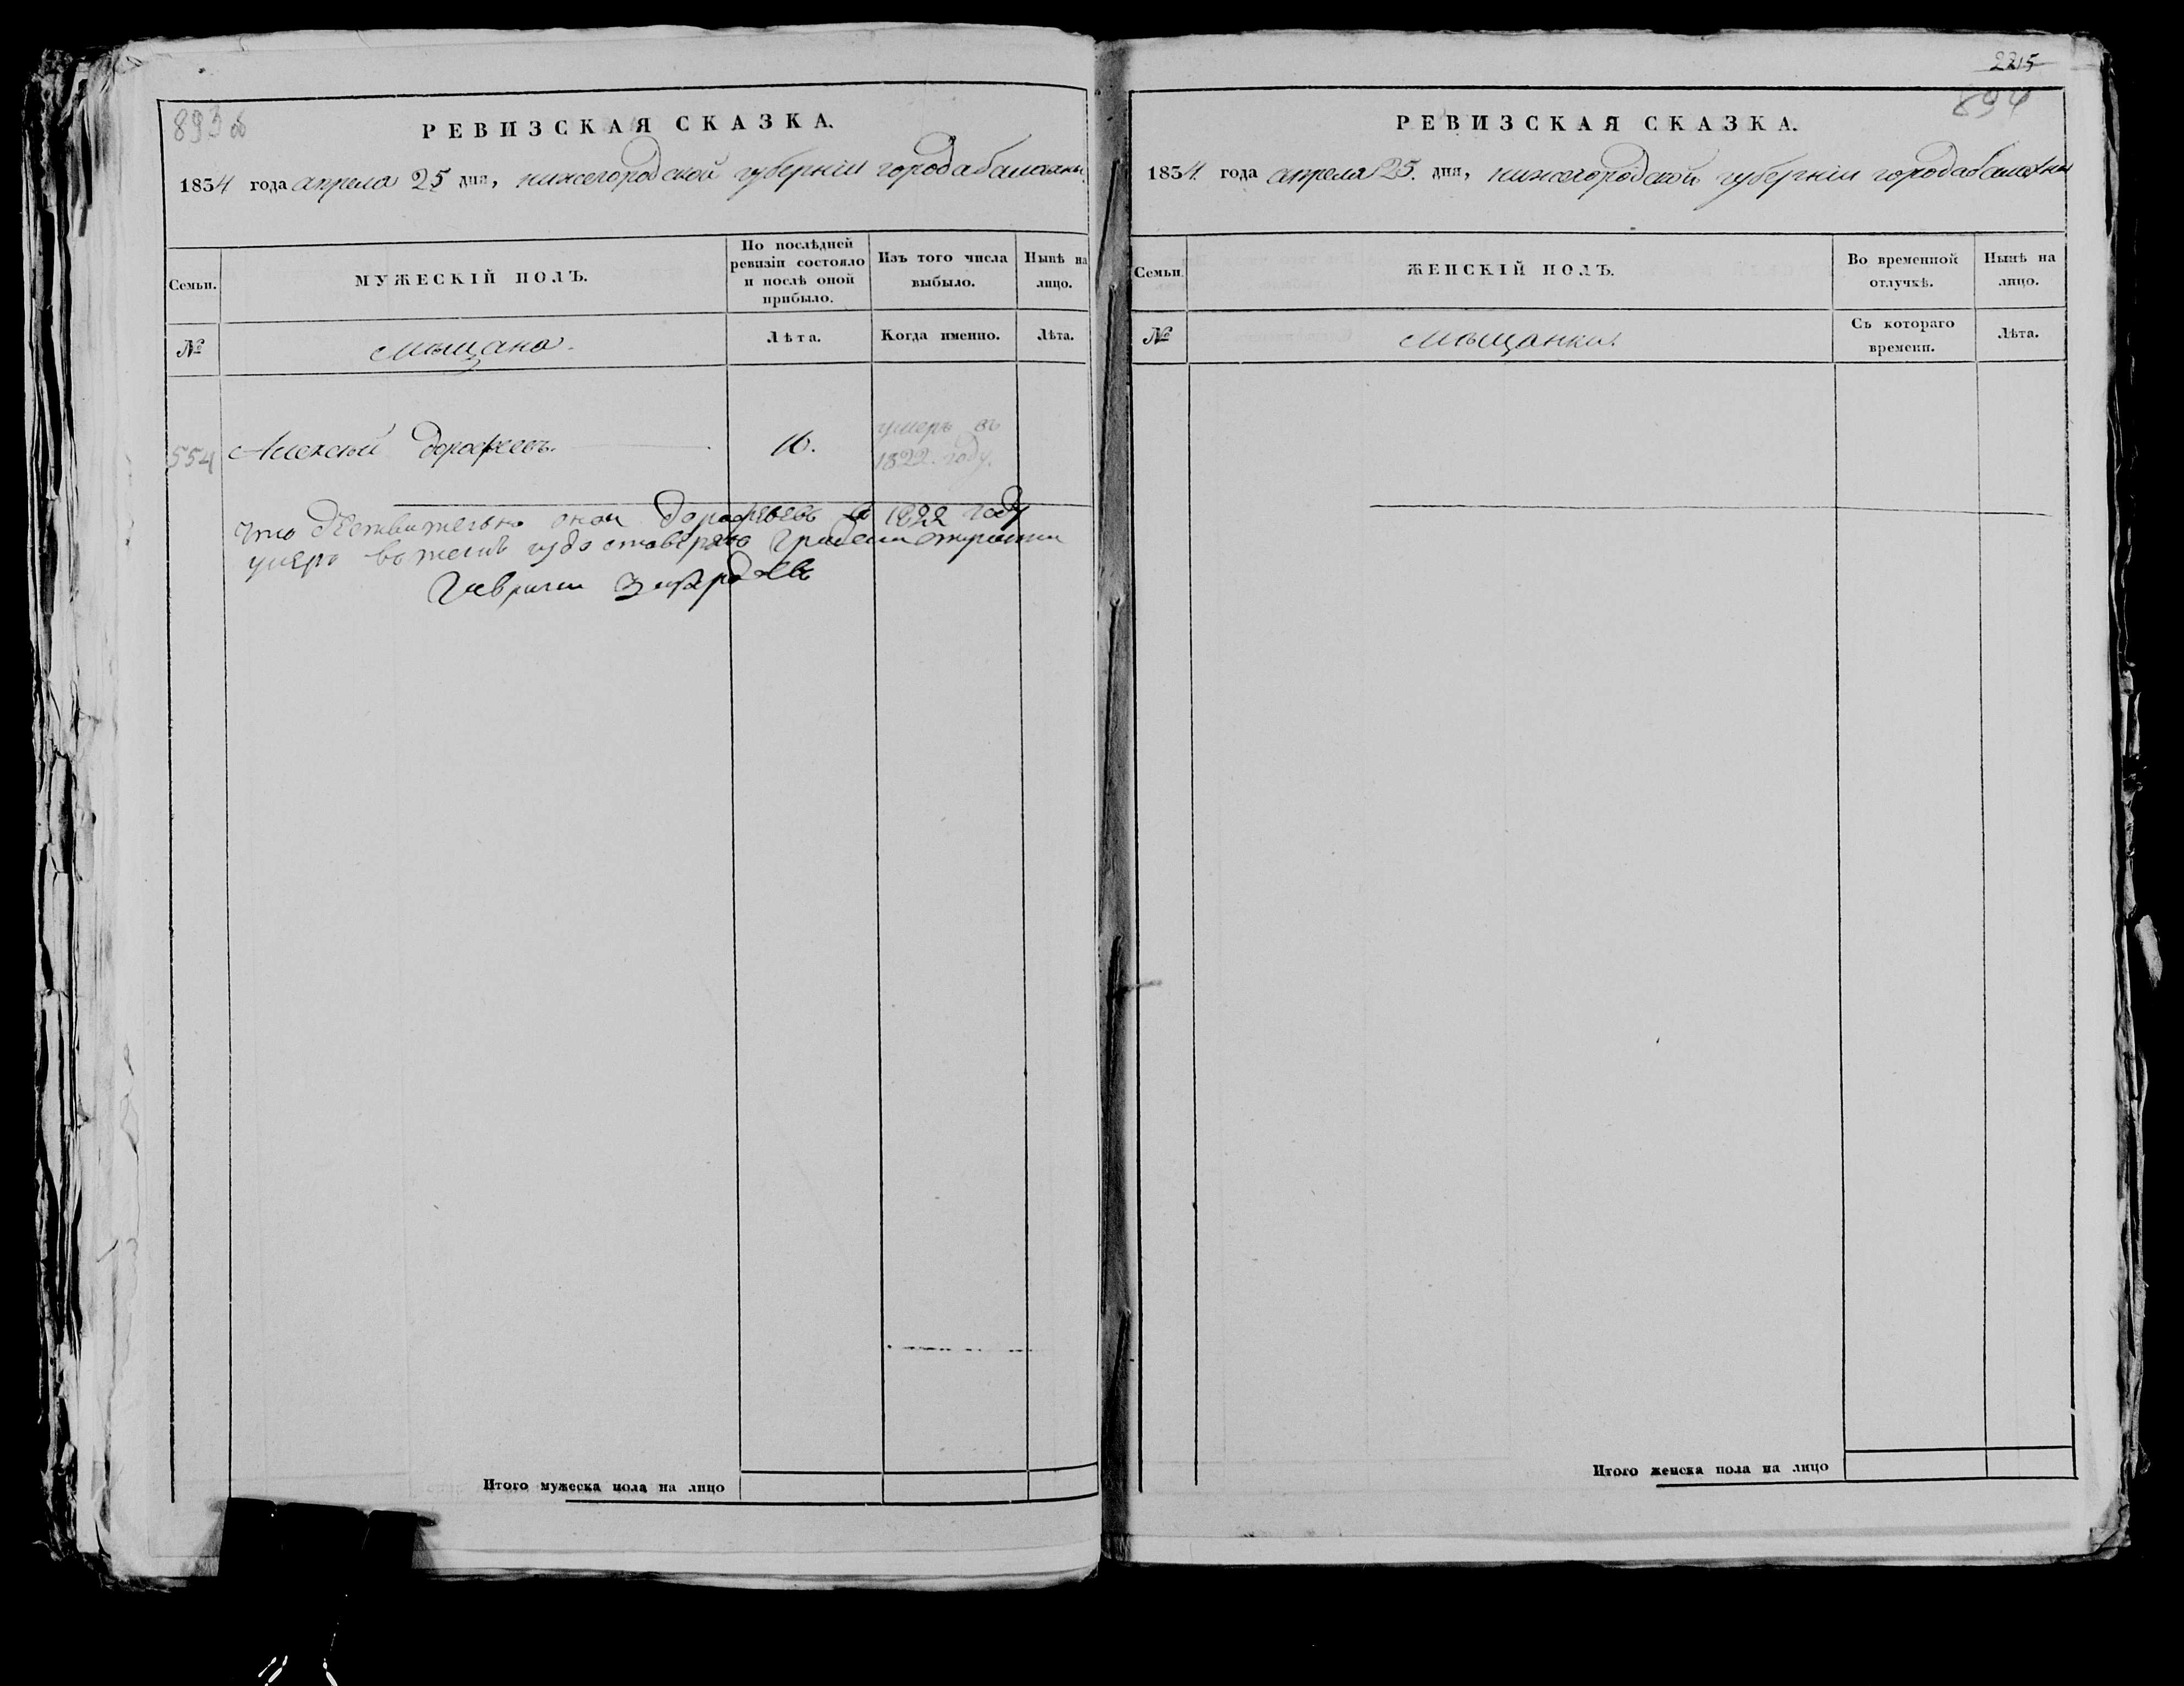 893 об
РЕВИЗСКАЯ СКАЗКА.
1834 года апреля 25 дня, нижегородской губерніи города балахны
Семьи.
МУЖЕСКІЙ ПОЛЪ.
По послѣдней ревизіи состояло и послѣ оной прибыло.
Изъ того числа выбыло.
Нынѣ на лицо.
№
мѣщане.
Лѣта.
Когда именно.
Лѣта.
554
Алексѣй дорофеевъ.
16.
умеръ въ
1822 году.
что действительно оной дорофеевъ в 1822 году
умеръ в томъ удостоверяю
Гаврила
Итого мужеска пола на лицо
2215
894
РЕВИЗСКАЯ СКАЗКА.
1834 года апреля 25. дня, нижегородской губерніи города балахны
Семьи.
ЖЕНСКІЙ ПОЛЪ.
Во временной отлучкѣ.
Нынѣ на лицо.
№
мѣщанки.
Съ котораго времени.
Лѣта.
Итого женска пола на лицо